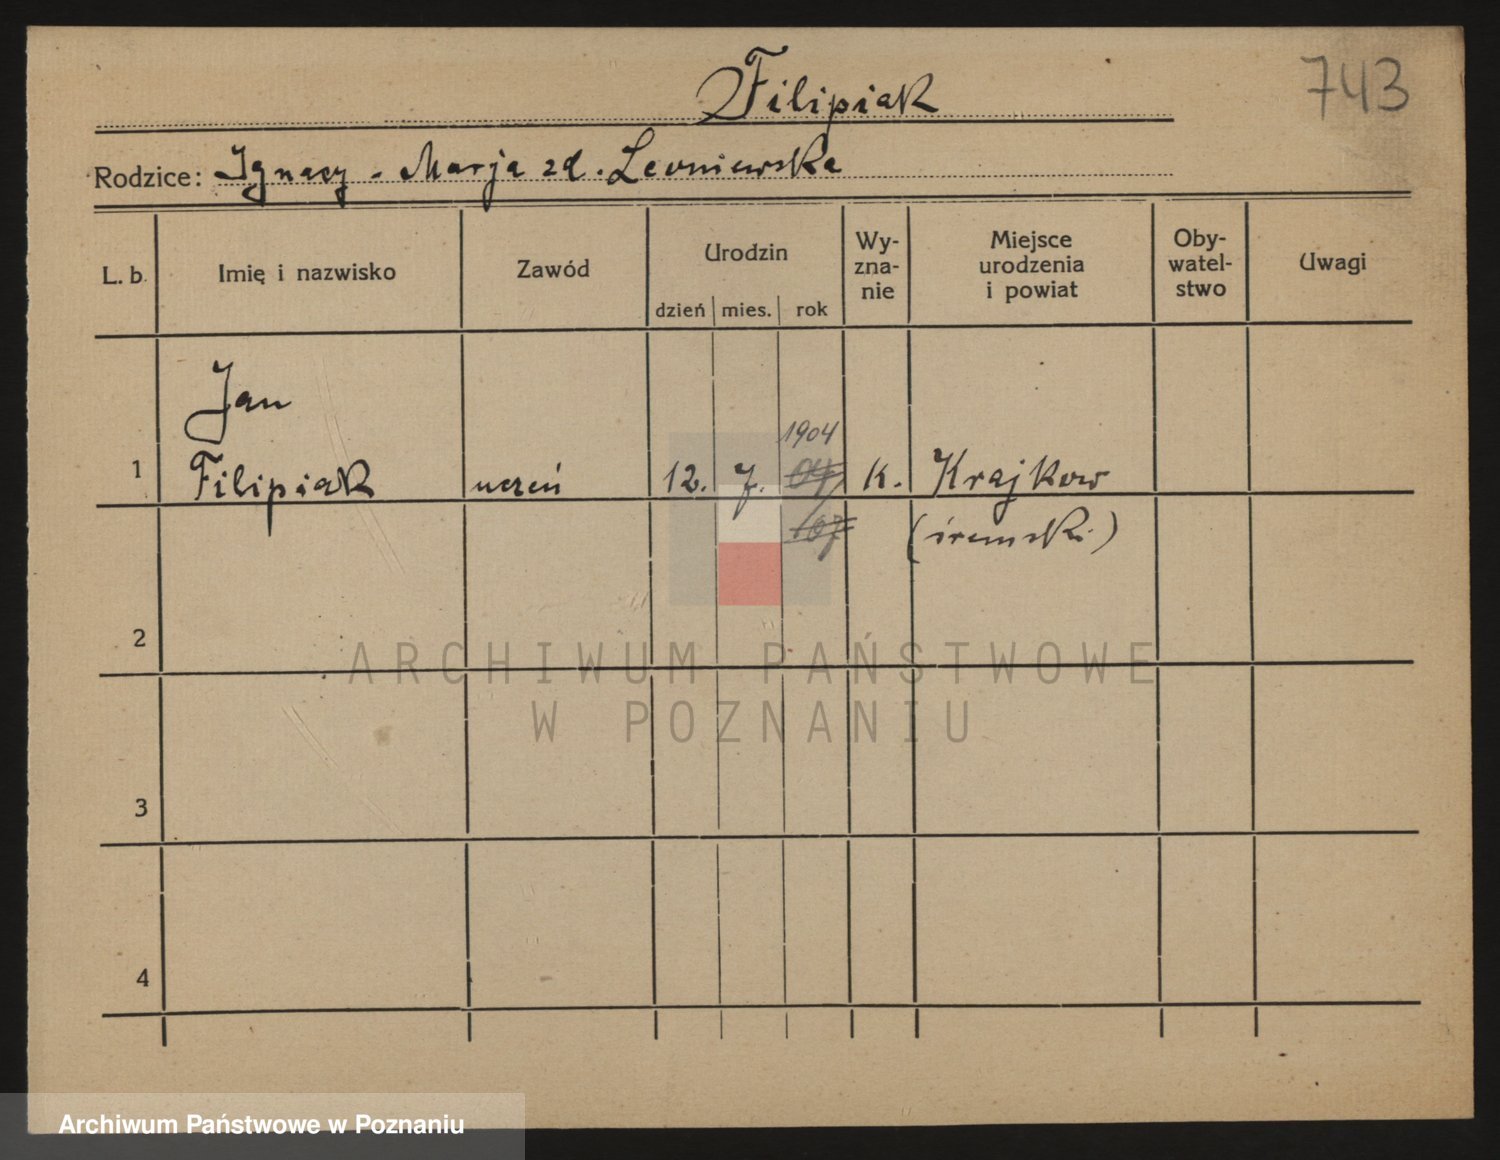 Filipiak
743
Rodzice: Ignacy - Marja zd. Leoniewska
L. b. Imię i nazwisko Zawód Urodzin dzień mies. rok Wy-zna-nie Miejsce urodzenia i powiat Oby-watel-stwo Uwagi
Jan
1904
1 Filipiak uczeń 12. 7. 04 k. Krajkow
07 (śremski)
2
ARCHIWUM PAŃSTWOWE
W POZNANIU
3
4
Archiwum Państwowe w Poznaniu